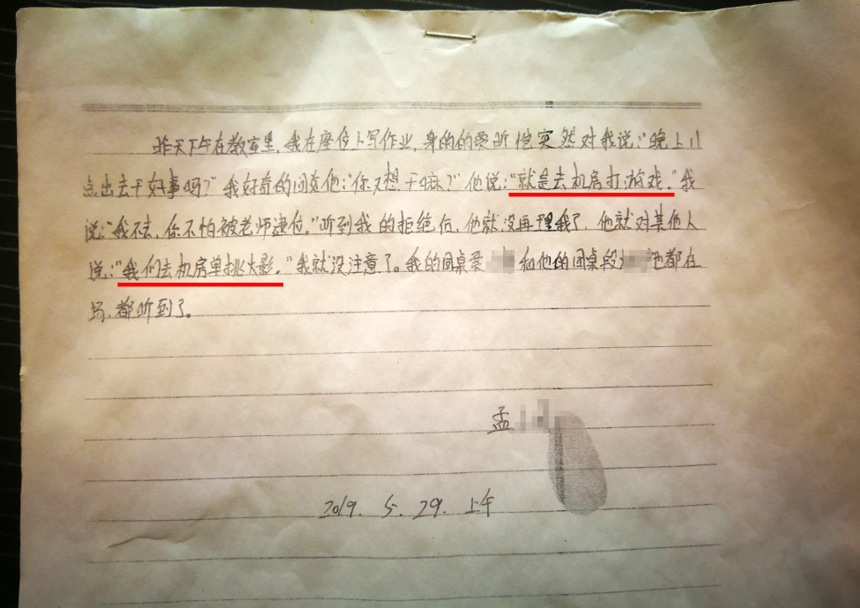 昨天下午在教室里,我在座位上写作业,身的的 突然对我说:“晚上11
点出去干好事吗?”我好奇的问 他:“你又想干嘛?”他说:“就是去机房打游戏。”我
说:“我不去,你不怕被老师逮住。”听到我的拒绝后,他就没再理我了,他就对其他人
说:“我们去机房单挑火影。”我就没注意了。我的同桌 和他的同桌段 也都在
场,都听到了。
孟
2019. 5. 29. 上午